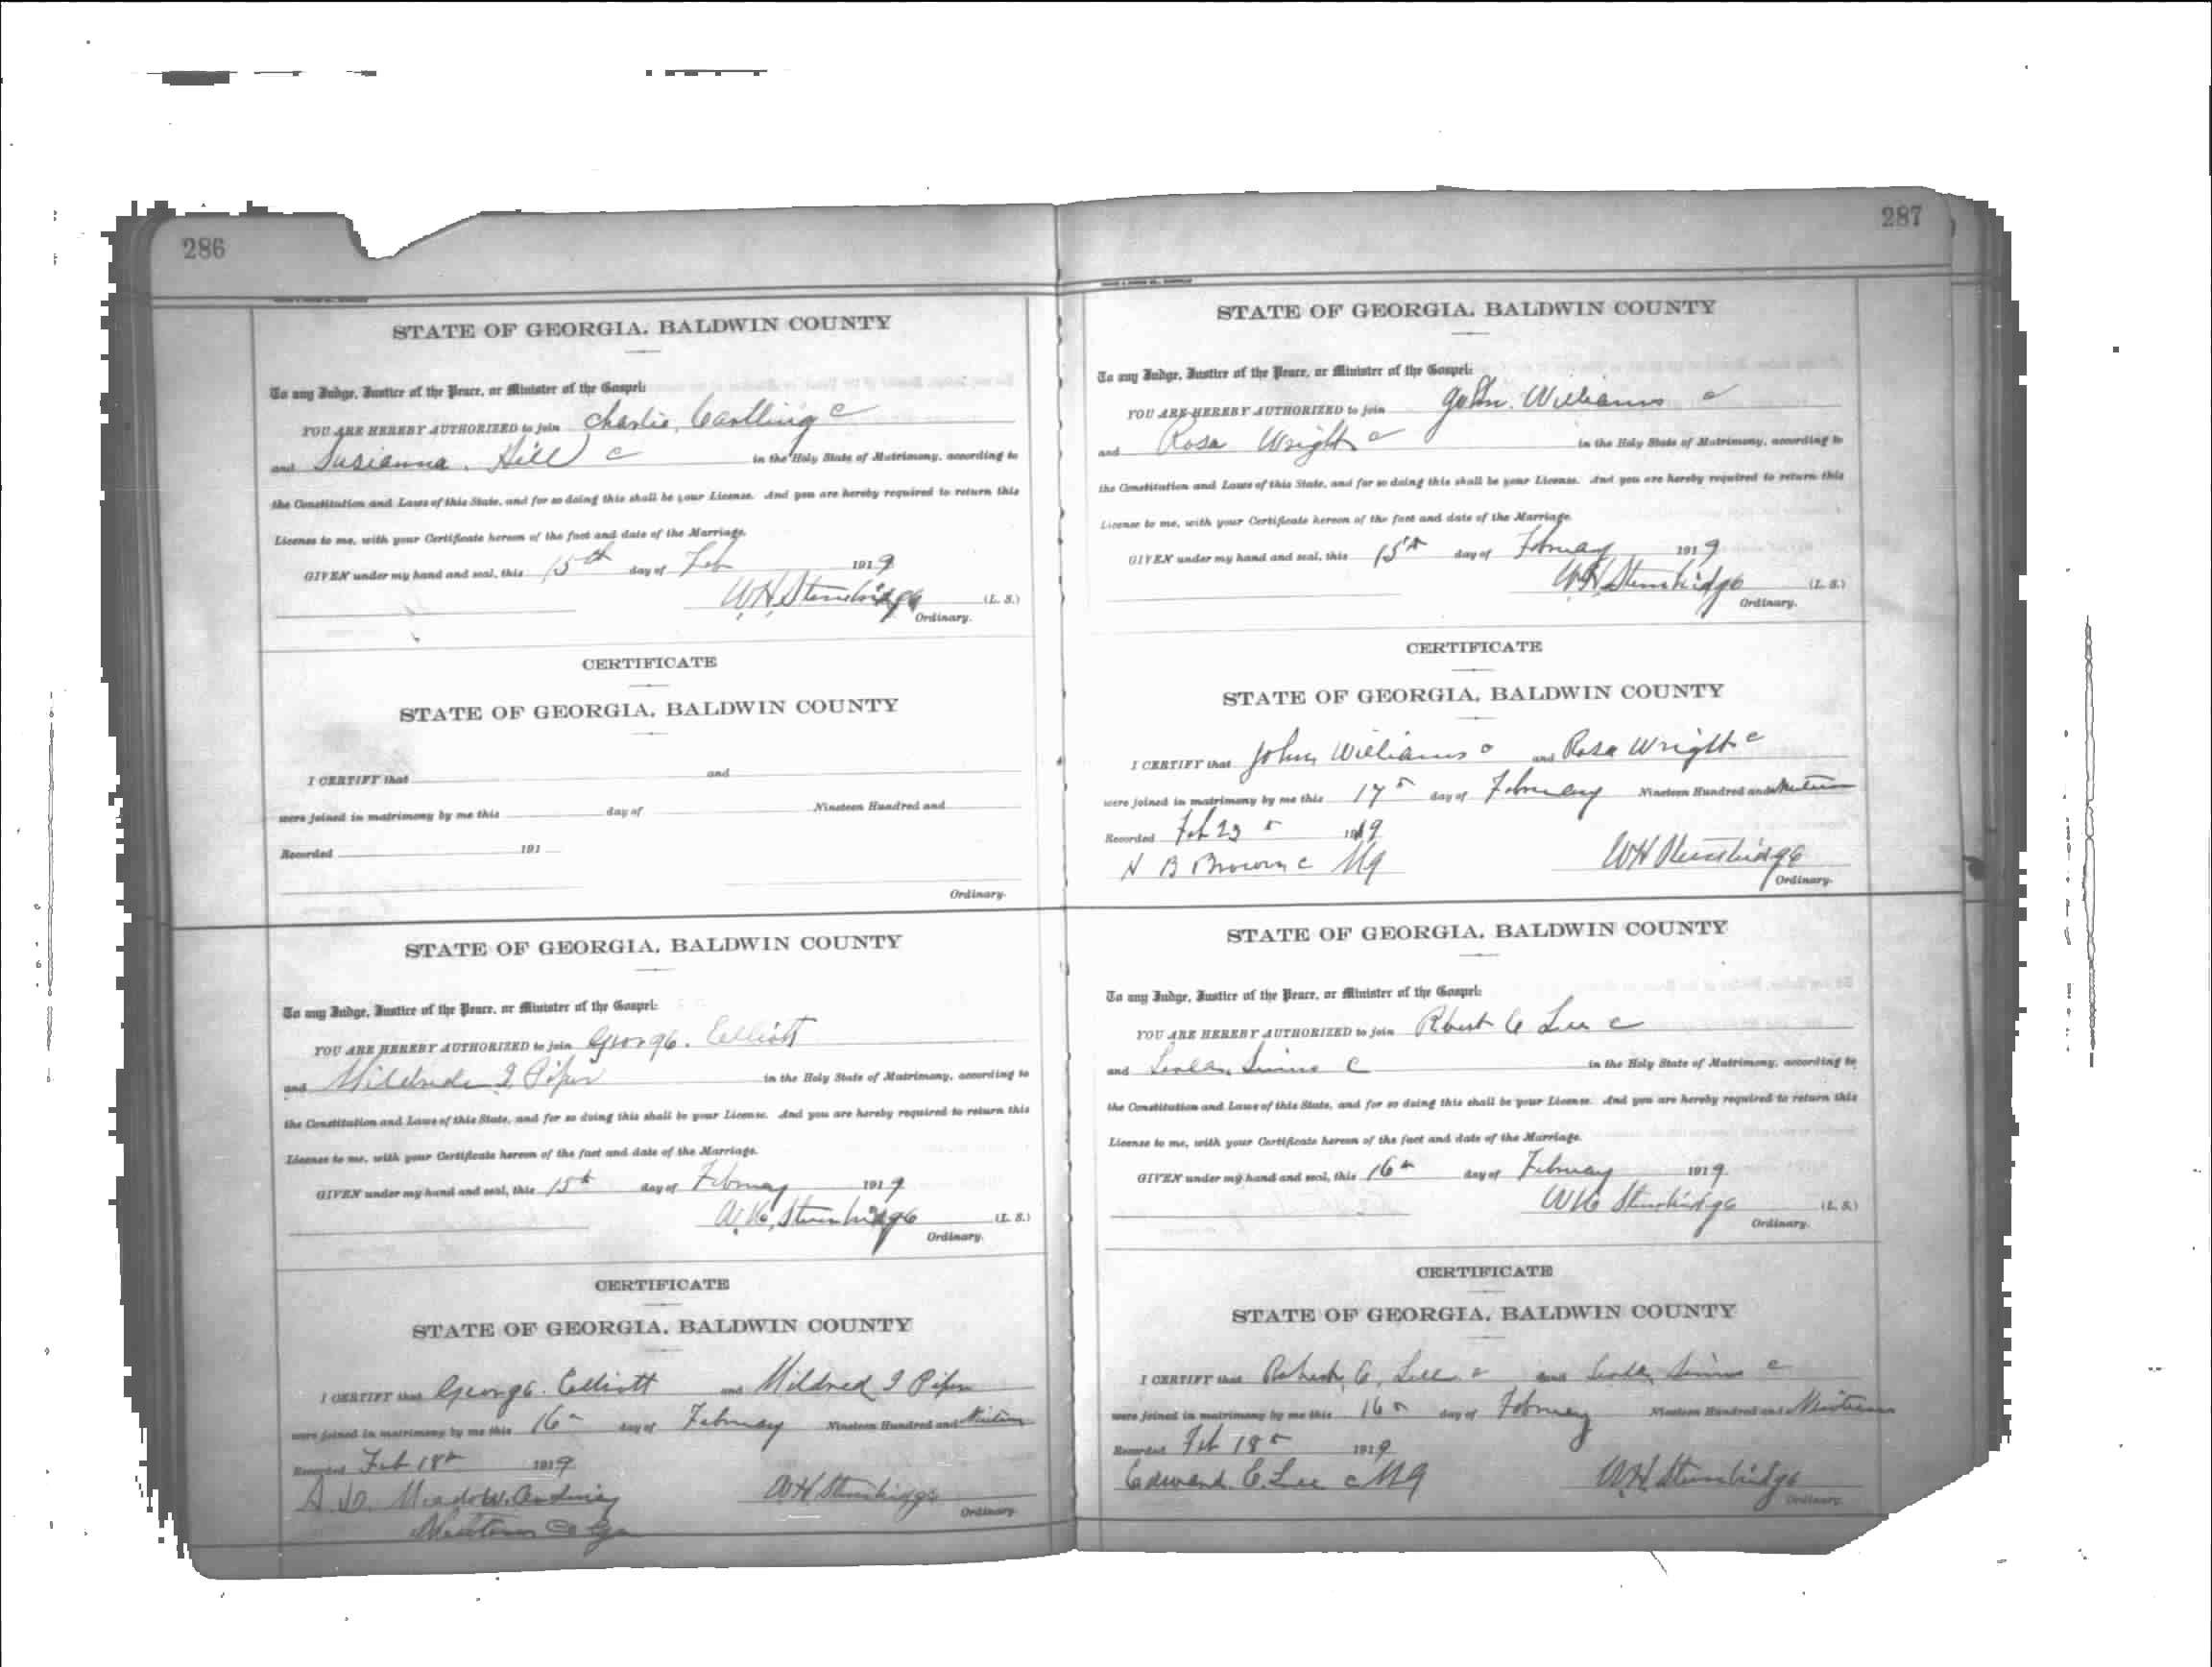 286
STATE OF GEORGIA, BALDWIN COUNTY
To any Judge, Justice of the Peace, or Minister of the Gospel:
YOU ARE HEREBY AUTHORIZED to join Charlie, Carlling c
and Susianna. Hill c in the Holy State of Matrimony, according to
the Constitution and Laws of this State, and for so doing this shall be your License. And you are hereby required to return this
License to me, with your Certificate hereon of the fact and date of the Marriage.
GIVEN under my hand and seal, this 15th day of Feb 1919
W H Stembridge (L. S.)
Ordinary.
CERTIFICATE
STATE OF GEORGIA, BALDWIN COUNTY
I CERTIFY that and
were joined in matrimony by me this day of Nineteen Hundred and
Recorded 191
Ordinary.
STATE OF GEORGIA, BALDWIN COUNTY
To any Judge, Justice of the Peace, or Minister of the Gospel:
YOU ARE HEREBY AUTHORIZED to join George. Elliott
and I Piper in the Holy State of Matrimony, according to
the Constitution and Laws of this State, and for so doing this shall be your License. And you are hereby required to return this
License to me, with your Certificate hereon of the fact and date of the Marriage.
GIVEN under my hand and seal, this 15th day of February 1919
W. H. Stembridge (L. S.)
Ordinary.
CERTIFICATE
STATE OF GEORGIA, BALDWIN COUNTY
I CERTIFY that George. Elliott and Mildred I Piper
were joined in matrimony by me this 16th day of February Nineteen Hundred and Nineteen
Recorded Feb 18th 1919
A. W H Stembridge
Ordinary.
Co Ga
287
STATE OF GEORGIA, BALDWIN COUNTY
To any Judge, Justice of the Peace, or Minister of the Gospel:
YOU ARE HEREBY AUTHORIZED to join John. Williams c
and Rosa Wright c in the Holy State of Matrimony, according to
the Constitution and Laws of this State, and for so doing this shall be your License. And you are hereby required to return this
License to me, with your Certificate hereon of the fact and date of the Marriage.
GIVEN under my hand and seal, this 15th day of February 1919
W H Stembridge (L. S.)
Ordinary.
CERTIFICATE
STATE OF GEORGIA, BALDWIN COUNTY
I CERTIFY that John Williams c and Rosa Wright c
were joined in matrimony by me this 17th day of February Nineteen Hundred and Nineteen
Recorded Feb 23th 1919
N B Brown c MG W H Stembridge
Ordinary.
STATE OF GEORGIA, BALDWIN COUNTY
To any Judge, Justice of the Peace, or Minister of the Gospel:
YOU ARE HEREBY AUTHORIZED to join Robert E Lee c
and Simms c in the Holy State of Matrimony, according to
the Constitution and Laws of this State, and for so doing this shall be your License. And you are hereby required to return this
License to me, with your Certificate hereon of the fact and date of the Marriage.
GIVEN under my hand and seal, this 16th day of February 1919
W H Stembridge (L. S.)
Ordinary.
CERTIFICATE
STATE OF GEORGIA, BALDWIN COUNTY
I CERTIFY that Robert E. Lee c and Simms c
were joined in matrimony by me this 16th day of February Nineteen Hundred and Nineteen
Recorded Feb 18th 1919
Edward E. Lee c MG W H Stembridge
Ordinary.